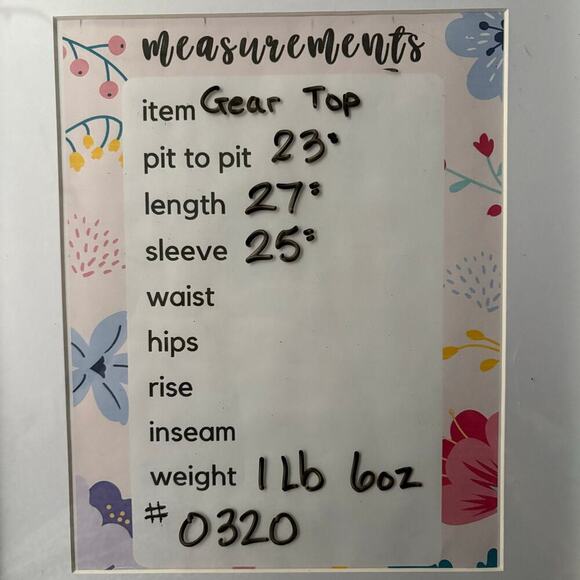 measurements
item Gear Top
pit to pit 23"
length 27"
sleeve 25"
waist
hips
rise
inseam
weight 1 Lb 6oz
# 0320